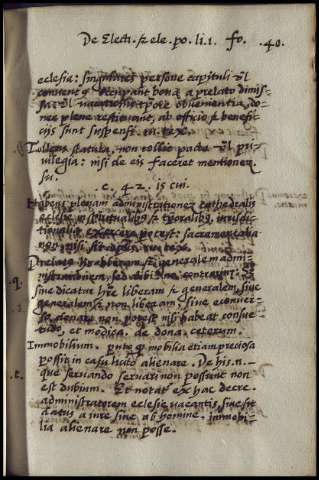 De Electi. & ele. po. li. 1. fo. 40.
eclesia: singulares persone capituli vel
conventus occupant bona a prelato dimis-
sa vel vacationis tpore obvenientia, do-
nec plene restituant, ab officio & benefic-
ijs sunt suspensi. in tex.
Tollens statuta, non tollit pacta vel pri-
vilegia: nisi de eis faceret mentionem.
c. 42. is cui.
Habens plenam administrationem cathedralis
eclesie in spiritualibus & tporalibus, iurisdic-
tionalia exercere potest: sacramentalia
nisi sit in tex.
Prelatus & generalem admi-
nistrationem, sed
sive dicatur hre liberam & generalem, sive
generalem & non liberam sive econver-
so, donare non potest nisi habeat consue-
tudo, et modica. de dona. ceterum.
Immobilium. puto q mobilia etiam preciosa
possit in casu licito alienare. De his n.
que servando servari non possunt non
est dubium. Et notat ex hac decre.
administratorem eclesie vacantis, sive sit
datus a iure sive ab homine, immobi-
lia alienare non posse.
.q.
.t.